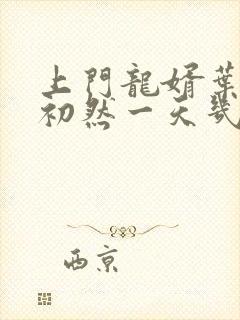 上門龍婿葉
初然一天幾
西京